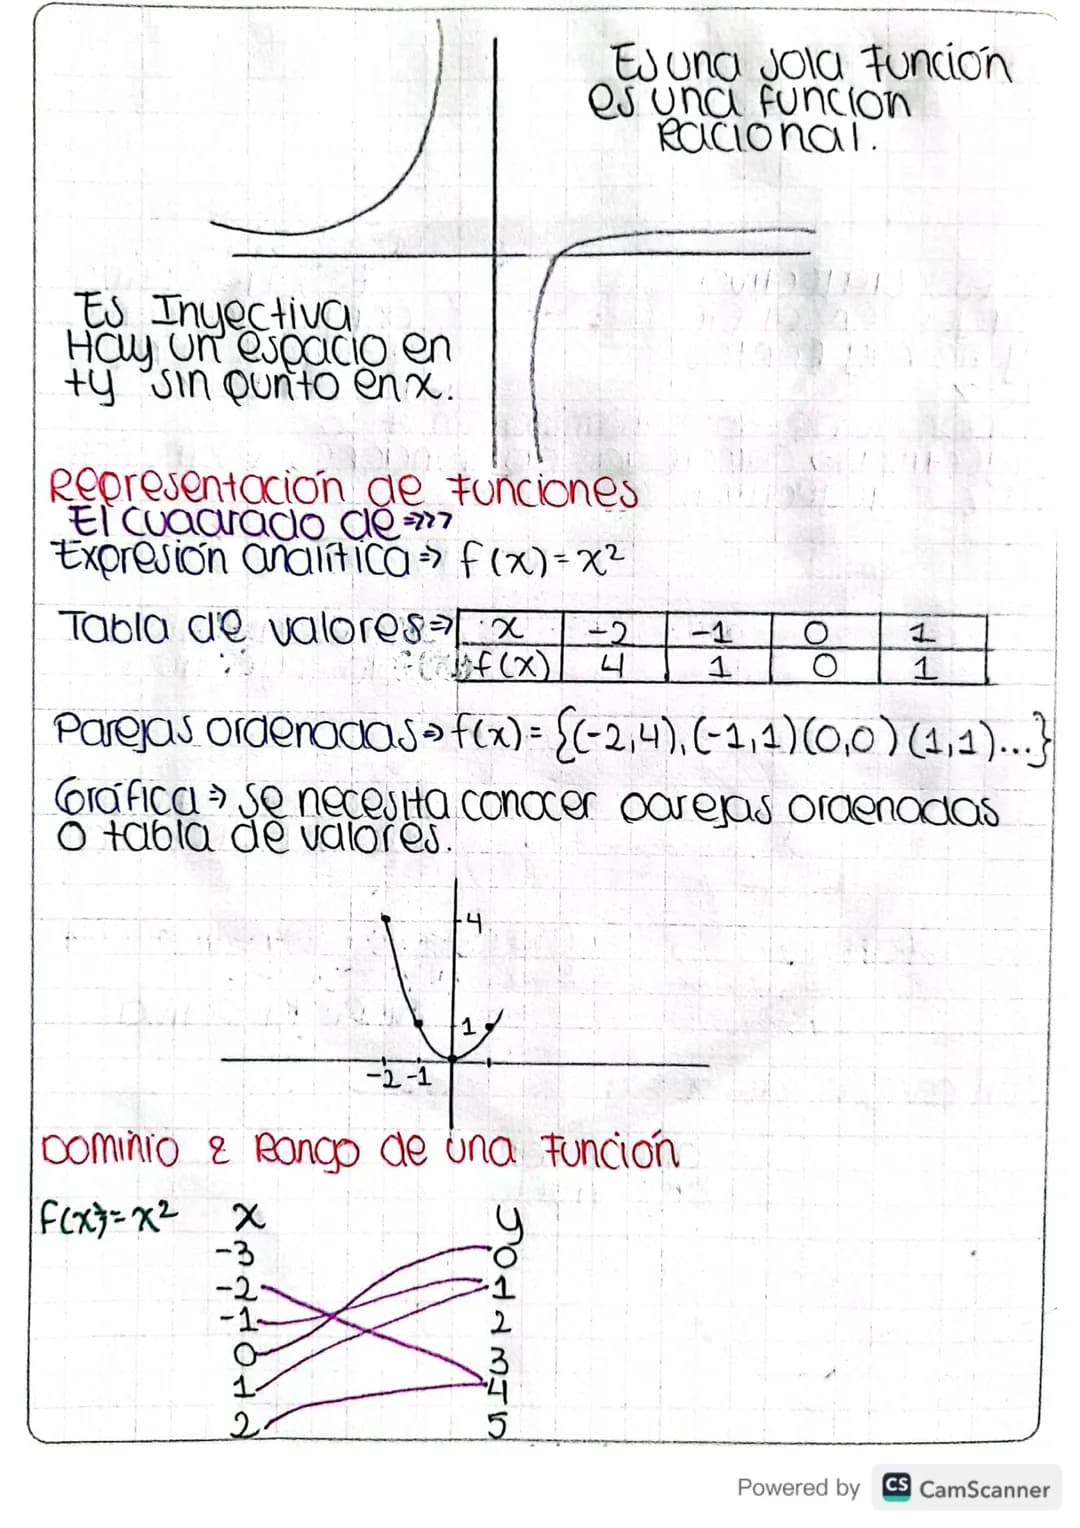 Es una sola función
es una función
Racional.
Es Inyectiva
Hay un espacio en
+y sin punto en x.
Representación de funciones
El cuadrado de =>??
Expresión analítica => f(x)=x²
Tabla de valores => x -2 -1 0 1
f(x) 4 1 0 1
Parejas ordenadas => f(x) = {(-2,4),(-1,1)(0,0)(1,1)...}
Gráfica => se necesita conocer parejas ordenadas
o tabla de valores.
4
1
-2 -1
Dominio & Rango de una función
f(x)=x² x y
-3 0
-2 1
-1 2
0 3
1 4
2 5
Powered by CS CamScanner